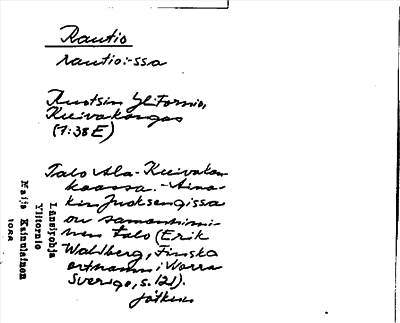 Rautio
rautio:-ssa
Ruotsin Ylitornio,
Kuivakangas
(7:38 E)
Talo Ala-Kuivakan-
kaassa. - Aina-
kin Juoksengissa
on samannimi-
nen talo (Erik
Wahlberg, Finska
ortnamn i Norra
Sverige, s. 121).
jatkuu
Länsipohja
Ylitornio
Maija Kainulainen